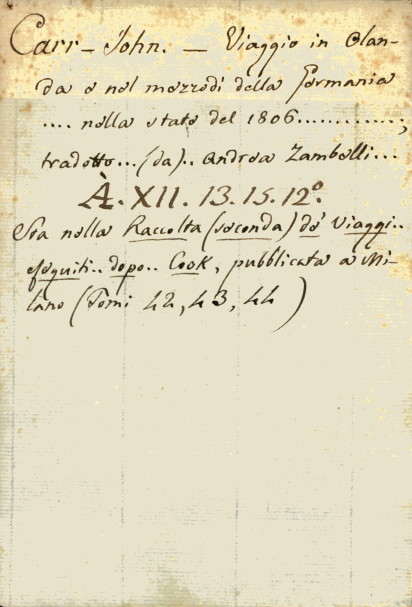 Carr - John. — Viaggio in Olan-
da e nel mezzodì della Germania
.... nella state del 1806.............,
tradotto... (da).. Andrea Zambelli...
À. XII. 13. 15. 12°.
Sta nella Raccolta (seconda) de' Viaggi..
eseguiti.. dopo.. Cook, pubblicata a Mi-
lano (Tomi 42, 43, 44)